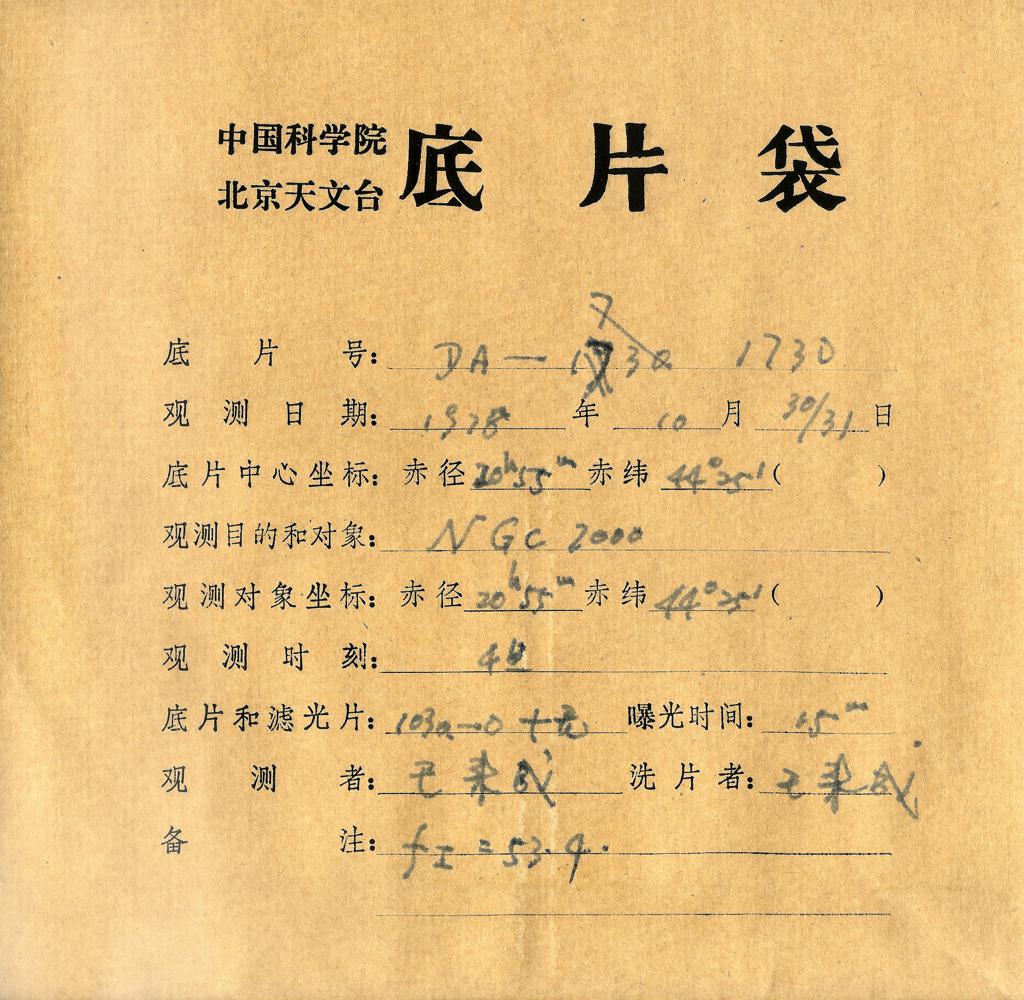 中国科学院
北京天文台 底片袋
底片号: DA— 1730
观测日期: 1978年10月30/31日
底片中心坐标: 赤径20h55m赤纬44°25′( )
观测目的和对象: NGC 7000
观测对象坐标: 赤径20h55m赤纬44°25′( )
观测时刻: 4h
底片和滤光片: 103a-O+ 曝光时间: 15m
观测者: 洗片者:
备注: fI=53.4.